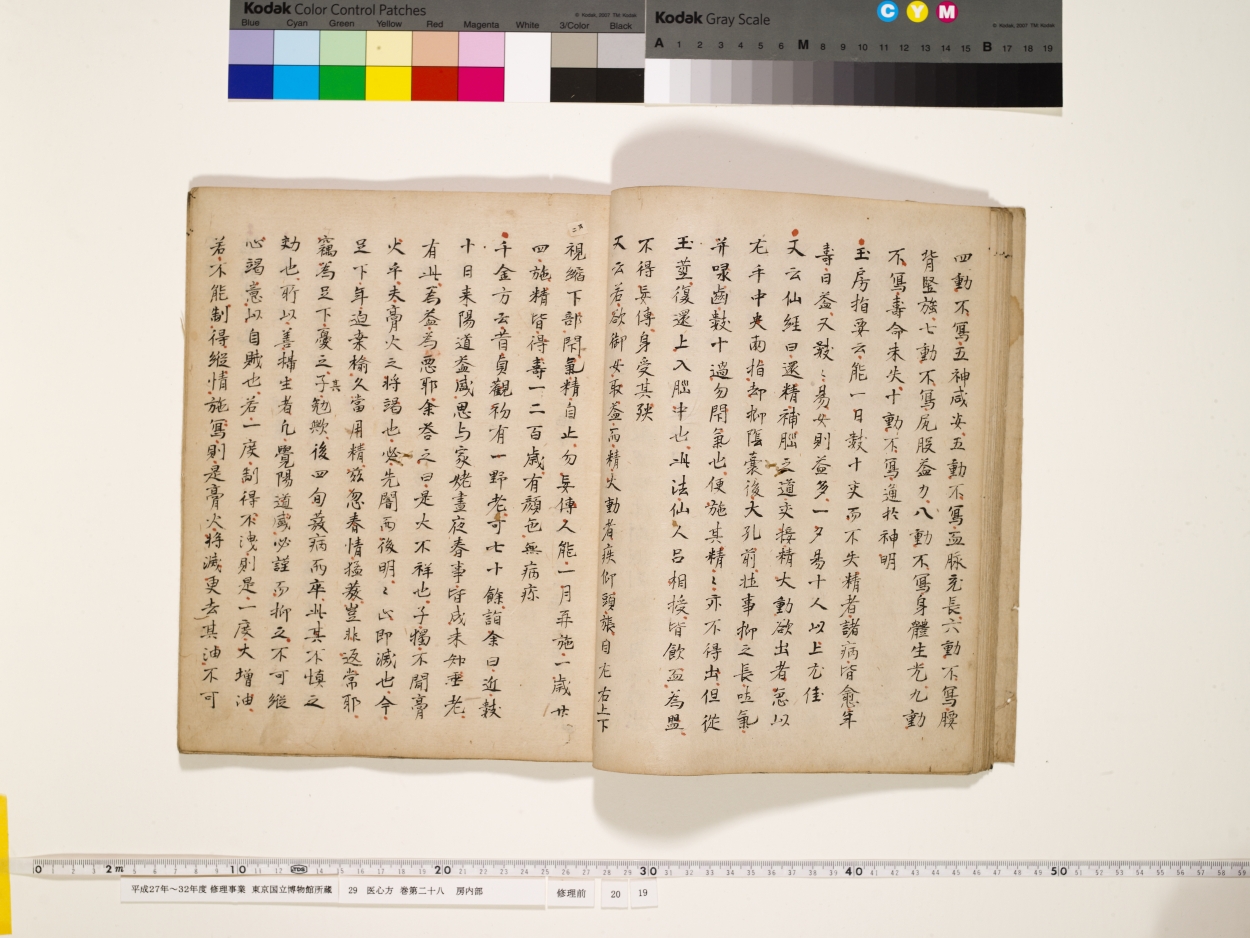 Kodak Color Control Patches
© Kodak, 2007 TM: Kodak
Blue Cyan Green Yellow Red Magenta White 3/Color Black
Kodak Gray Scale
C Y M
© Kodak, 2007 TM: Kodak
A 1 2 3 4 5 6 M 8 9 10 11 12 13 14 15 B 17 18 19
四動不寫五神咸安五動不寫血脉充長六動不寫腰
背堅強七動不寫尻股益力八動不寫身體生光九動
不寫壽命未失十動不寫通於神明
玉房指要云能一日數十交而不失精者諸病皆愈年
壽日益又數〻易女則益多一夕易十人以上尤佳
又云仙經曰還精補腦之道交接精大動欲出者急以
左手中央兩指却抑陰囊後大孔前壯事抑之長吐氣
并啄齒數十過勿閇氣也便施其精〻亦不得出但從
玉莖復還上入腦中也此法仙人呂相授皆飲血為盟
不得妄傳身受其殃
又云若欲御女取益而精大動者疾仰頭張目左右上下
視縮下部閇氣精自止勿妄傳人能一月再施一歲廿
四施精皆得壽一二百歲有顏色無病疹
千金方云昔貞觀初有一野老可七十餘詣余曰近數
十日来陽道益盛思与家姥晝夜春事皆成未知垂老
有此為益為惡耶余答之曰是大不祥也子獨不聞膏
火乎夫膏火之將竭也必先闇而後明〻止即滅也今
足下年迫桒榆久當用精茲忽春情猛發豈非返常耶
竊為足下憂之子其勉歟後四旬發病而卒此其不慎之
効也所以善攝生者凡覺陽道盛必謹而抑之不可縱
心竭意以自賊也若一度制得不洩則是一度大增油
若不能制得縱情施寫則是膏火將滅更去其油不可
0 2m 10 20 30 40 50
平成27年～32年度 修理事業 東京国立博物館所蔵
29 医心方 巻第二十八 房内部
修理前
20
19